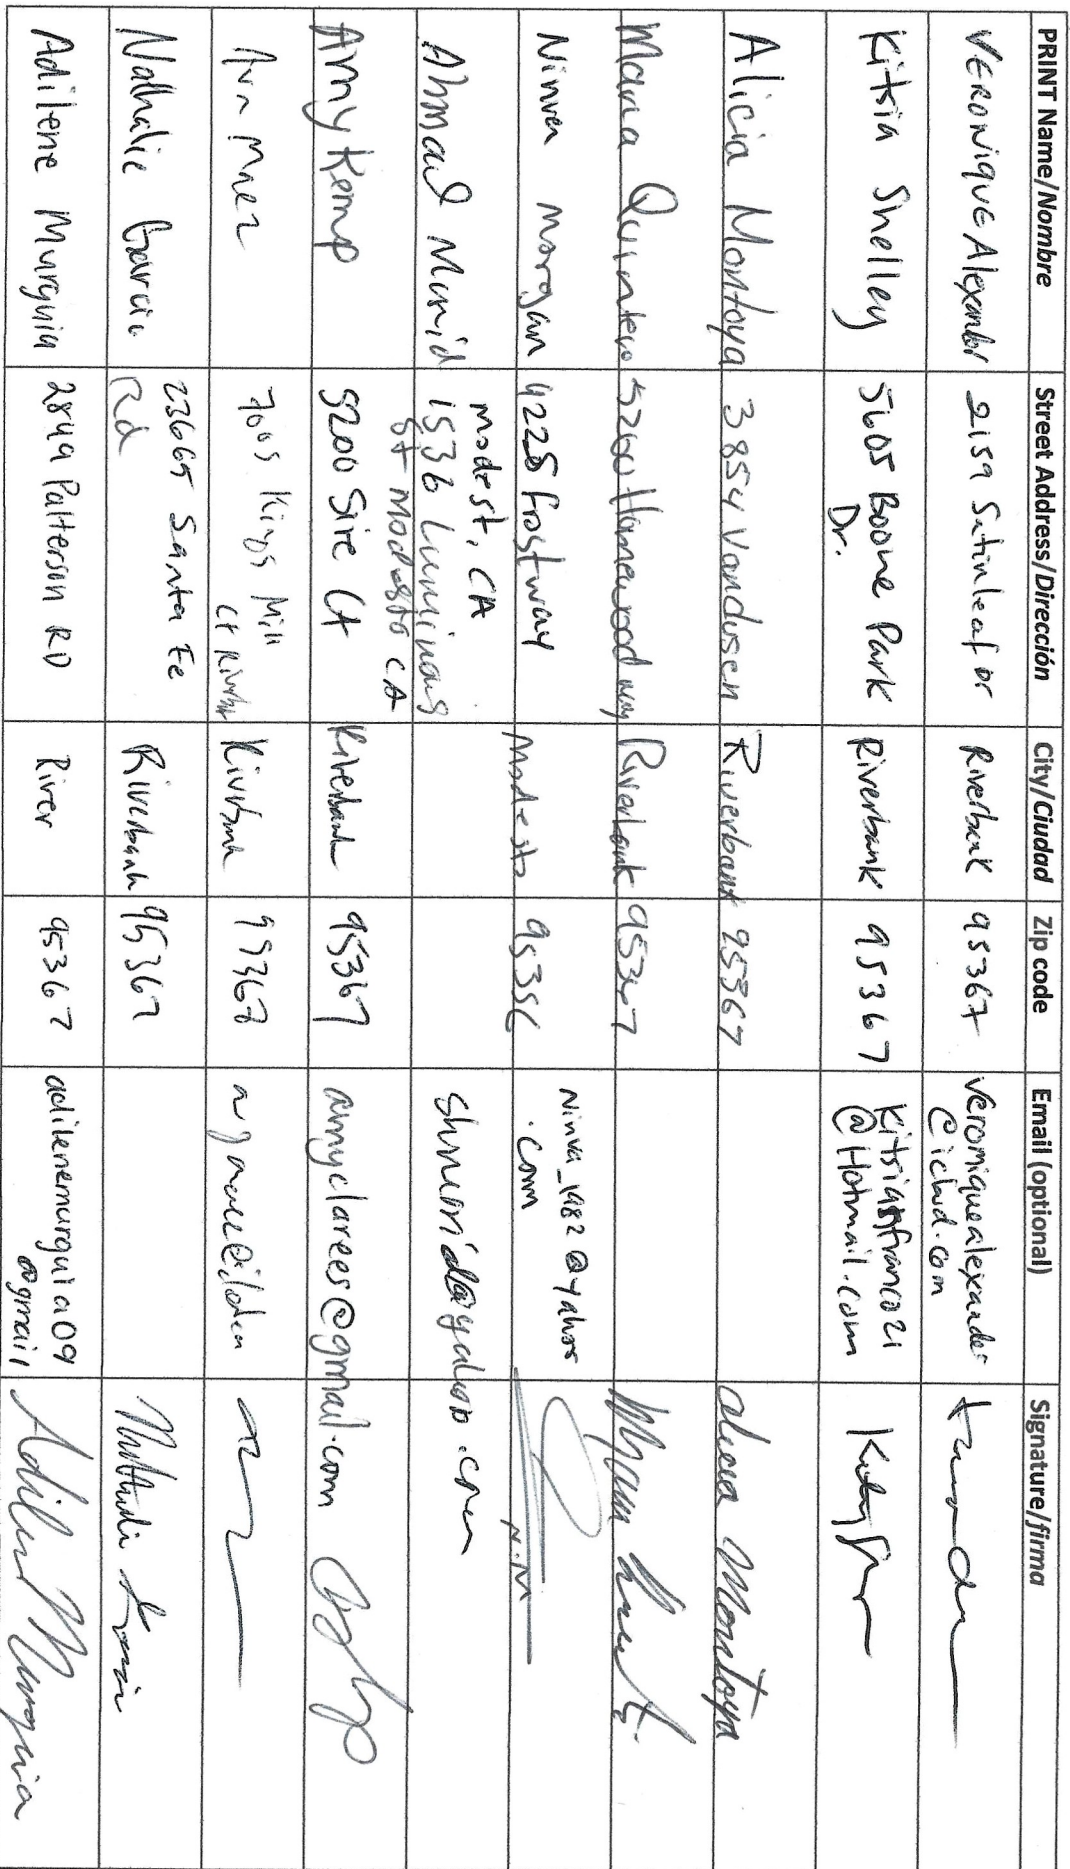 PRINT Name/Nombre Street Address/Dirección City/Ciudad Zip code Email (optional) Signature/firma
VERONIQUE Alexander 2159 Satinleaf Dr Riverbank 95367 veroniquealexander
@icloud.com
Kitsia Shelley 5605 Boone Park Riverbank 95367 Kitsiasfranco21
Dr. @Hotmail.com
Alicia Montoya 3854 Vandusen Riverbank 95367 Alicia Montoya
Maria Quintero 5200 Homewood way Riverbank 95367
Ninva Morgan 4225 Frostway Modesto 95356 Ninva_1982@yahoo
modest, CA .com N.M
Ahmad Munid 1536 Luminous
St Modesto CA
Amy Kemp 5200 Sire Ct Riverbank 95367 amyclarees@gmail.com
7005 Kings Mill Riverbank
Ct
Nathalie Garcia 23665 Santa Fe Riverbank 95367
Rd
Adilene Murguia 2849 Patterson RD River 95367 adilenemurguia09 Adilene Murguia
@gmail